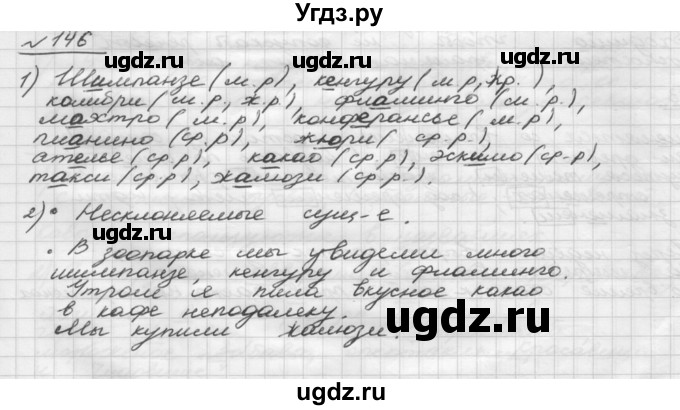 Угдз.ру
№ 146
1) Шимпанзе (м.р), кенгуру (м.р, ж.р.),
колибри (м.р, ж.р.), фламинго (м.р.),
маэстро (м.р), конферансье (м.р),
пианино (ср.р), жюри (ср.р.),
ателье (ср.р), какао (ср.р), эскимо (ср.р),
такси (ср.р), жалюзи (ср.р.).
2) • Несклоняемые сущ-е.
• В зоопарке мы увидели много
шимпанзе, кенгуру и фламинго.
Утром я пила вкусное какао
в кафе неподалеку.
Мы купили жалюзи.
ugdz.ru
ugdz.ru
ugdz.ru
ugdz.ru
ugdz.ru
ugdz.ru
ugdz.ru